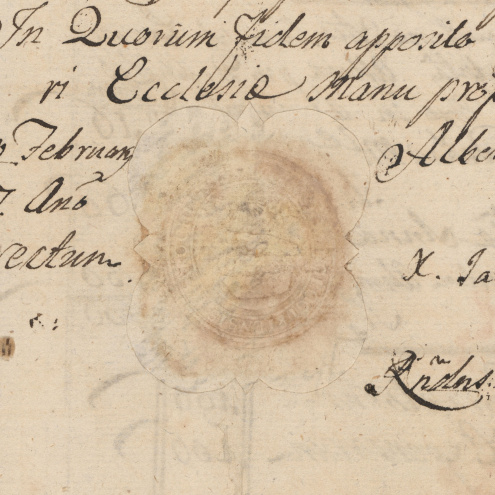 In Quorum fidem apposito
ri Ecclesiæ manu prop
Februarij
Albe
7. Año
rectum
X. Ja
Rndus.